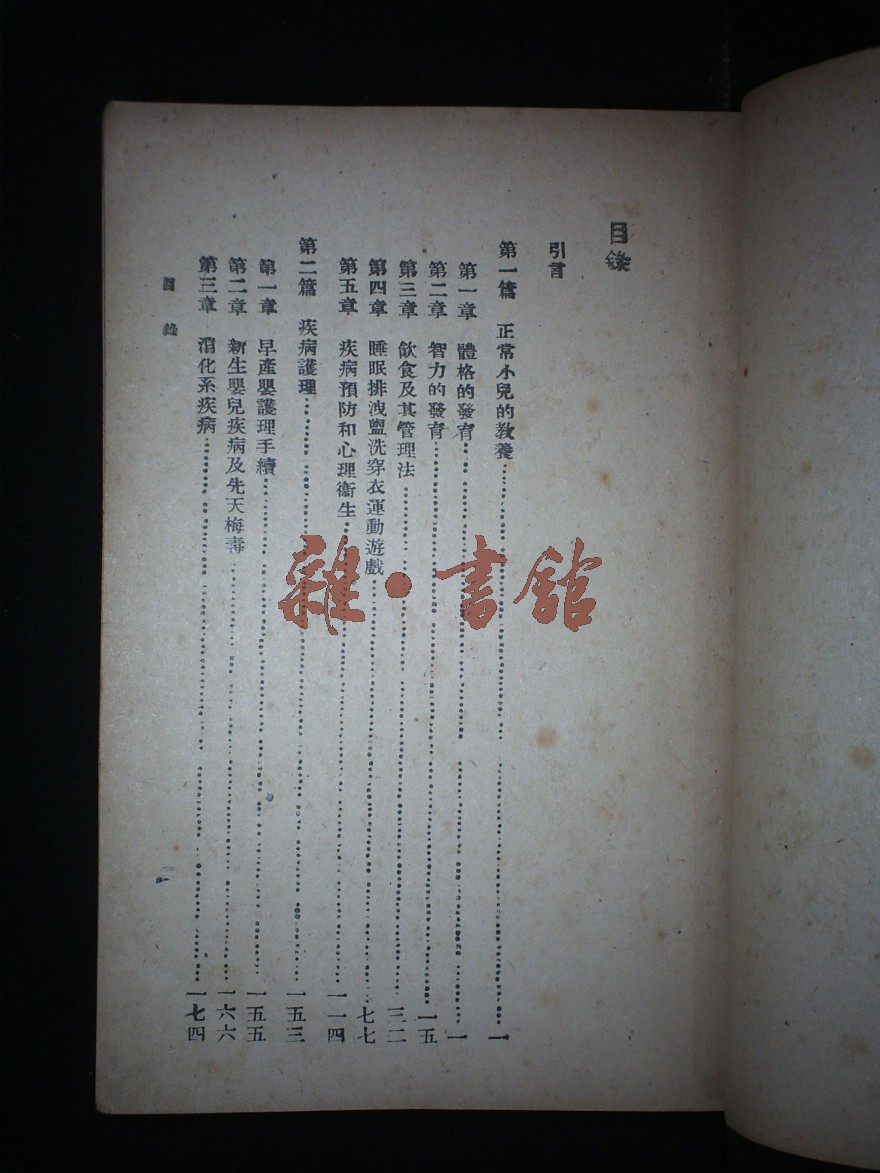 目錄
引言
第一篇 正常小兒的教養……一
第一章 體格的發育……一
第二章 智力的發育……一五
第三章 飲食及其管理法……三二
第四章 睡眠排洩盥洗穿衣運動遊戲……七七
第五章 疾病預防和心理衞生……一一四
第二篇 疾病護理……一五三
第一章 早產嬰護理手續……一五五
第二章 新生嬰兒疾病及先天梅毒……一六六
第三章 消化系疾病……一七四
目錄
一
雜·書館